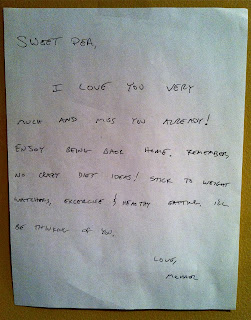 SWEET PEA,
I LOVE YOU VERY
MUCH AND MISS YOU ALREADY!
ENJOY BEING BACK HOME. REMEMBER,
NO CRAZY DIET IDEAS! STICK TO WEIGHT
WATCHERS, EXCERCISE & HEALTHY EATING. I'LL
BE THINKING OF YOU.
LOVE,
MICHAEL